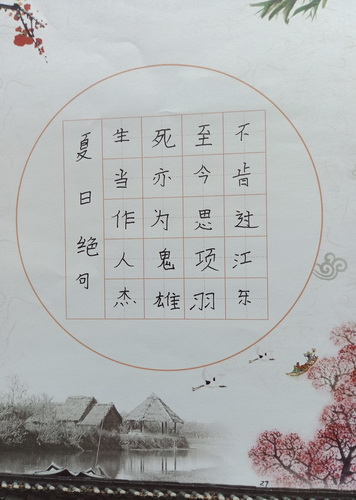 夏日绝句
生当作人杰
死亦为鬼雄
至今思项羽
不肯过江东
27